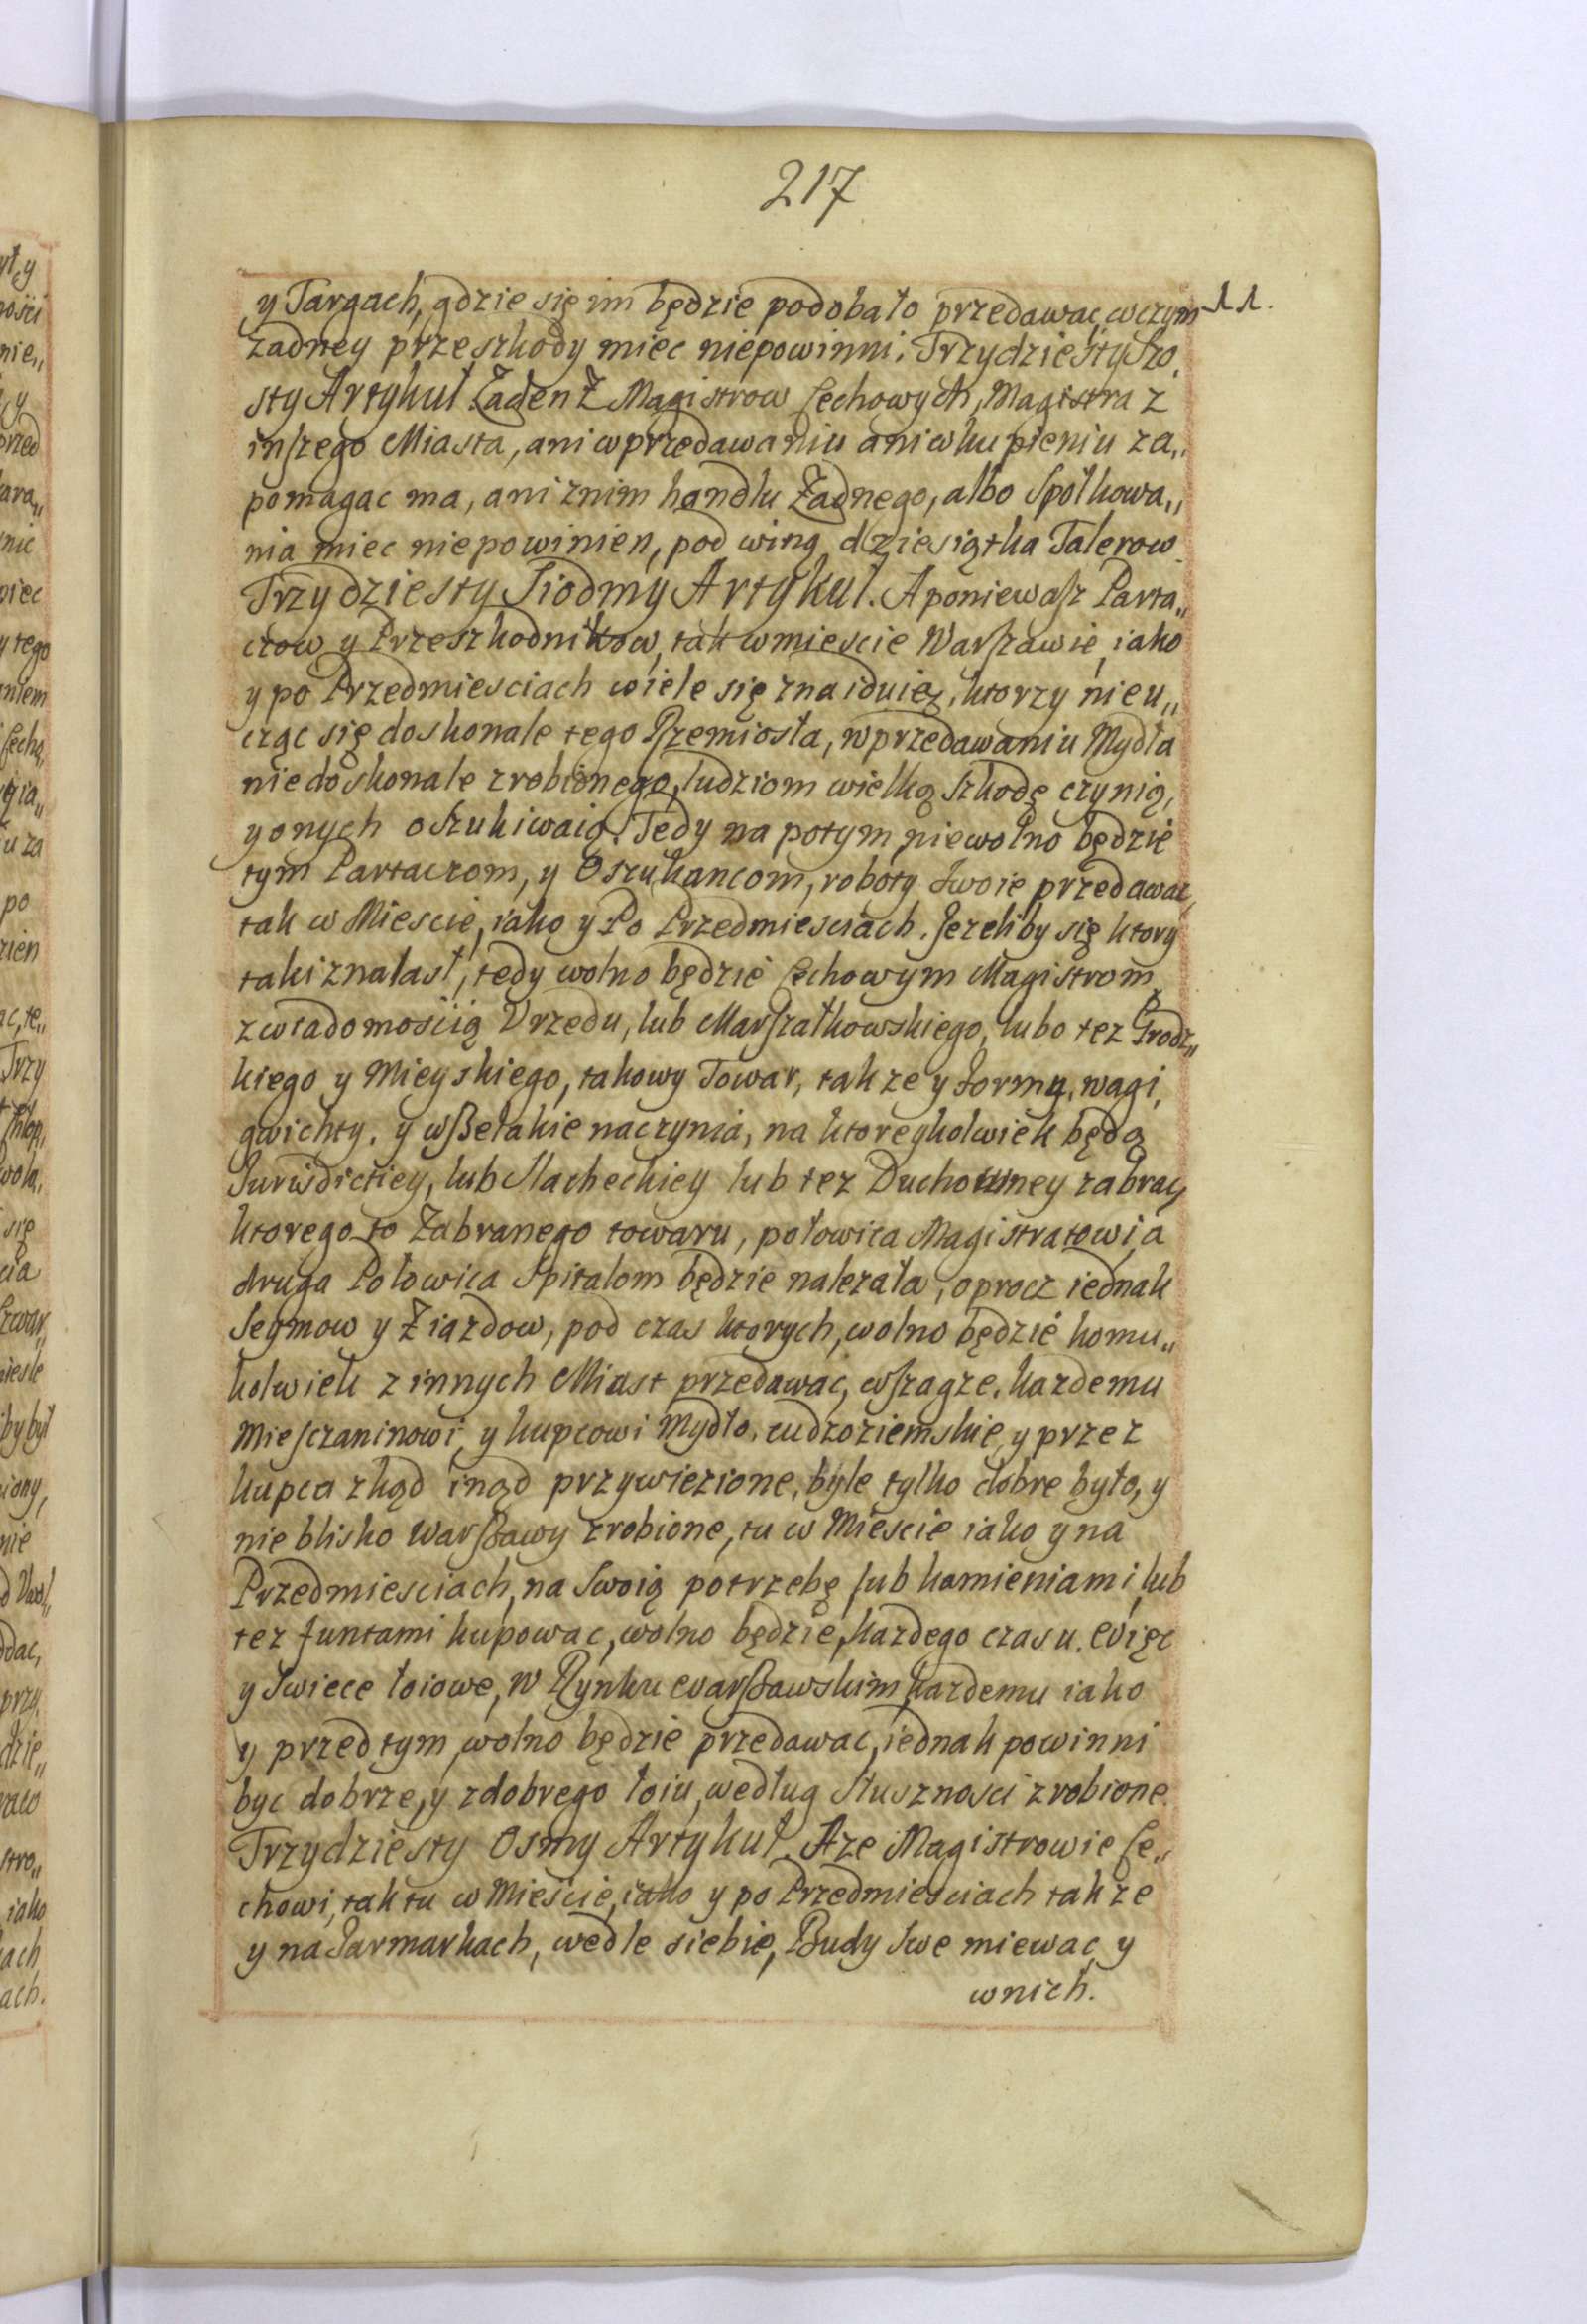 217
y Targach, gdzie się im będzie podobało przedawac, wczym
zadney przeszkody miec niepowinni. Trzydziesty Szo,
sty Artykuł. Żaden Z Magistrow Cechowych, Magistra z
inszego Miasta, ani w przedawaniu ani w kupieniu za„
pomagac ma, ani znim handlu Żadnego, albo Społkowa„
nia miec niepowinien, pod winą dziesiątka Talerow.
Trzydziesty Siodmy Artykuł. A poniewasz Parta„
czow y Przeszkodnikow, tak wmiescie Warszawie, iako
y po Przedmiesciach wiele się znaiduią, ktorzy nieu„
cząc się doskonale tego Rzemiosła, w przedawaniu Mydła
niedoskonale zrobionego, ludziom wielką szkodę czynią,
y onych oszukiwaią. Tedy na potym, niewolno będzie
tym Partaczom, y Oszukancom, roboty swoie przedawac,
tak w Miescie, iako y Po Przedmiesciach. Jezeliby się ktory
taki znalasł, tedy wolno będzie Cechowym Magistrom,
zwiadomością Vrzędu, lub Marszałkowskiego, lubo tez Grodz„
kiego y Mieyskiego, takowy Towar, takze y formy, wagi,
gwichty, y wszelakie naczynia, na ktoreykolwiek będą
Jurisdictiey, lub Slacheckiey lub tez Duchowney zabrac,
ktorego to Zabranego towaru, połowica Magistratowi, a
druga Połowica Spitalom będzie nalezała, oprocz iednak
Seymow y Ziazdow, pod czas ktorych, wolno będzie komu„
kolwiek z innych Miast przedawac, wszagze, kazdemu
Miesczaninowi, y kupcowi Mydło, cudzoziemskie, y przez
kupca zkąd inąd przywiezione, byle tylko dobre było, y
nie blisko Warszawy zrobione, tu w Miescie iako y na
Przedmiesciach, na Swoią potrzebę, lub kamieniami, lub
tez funtami kupowac, wolno będzie, kazdego czasu. Więc
y Swiece łoiowe, w Rynku Warszawskim kazdemu iako
y przed tym, wolno będzie przedawac, iednak powinni
byc dobrze, y zdobrego łoiu, według Słusznosci zrobione.
Trzydziesty Osmy Artykuł. Aze Magistrowie Ce„
chowi, tak tu w Miescie, iako y po Przedmiesciach takze
y na Jarmarkach, wedle siebie, Budy Swe miewac, y
wnich.